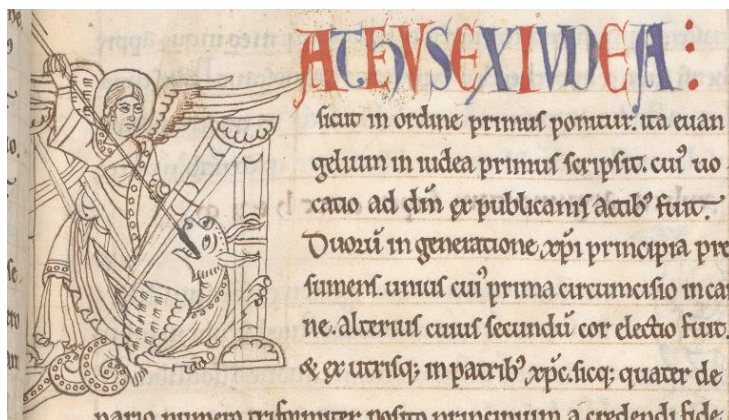 MATHEUS EX IUDEA:
sicut in ordine primus ponitur. ita euan
gelium in iudea primus scripsit. cui' uo
catio ad dn̄m ex publicanis actib' fuit.
Duorū in generatione xp̄i principia pre
sumens. unius cui' prima circumcisio in car
ne. Alterius cuius secundū cor electio fuit.
& ex utrisq; in patrib' xp̄c. sicq; quater de
nario numero triformiter posito principium a credendi fide